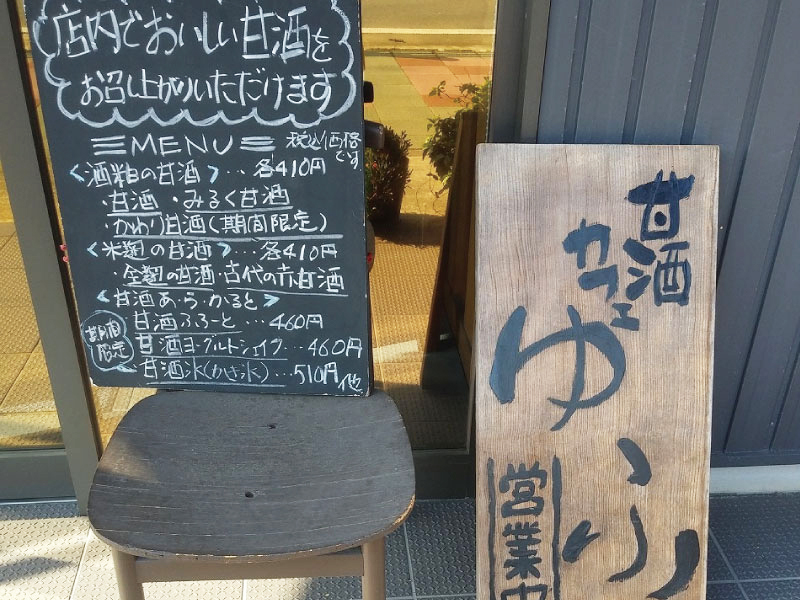 店内でおいしい甘酒を
お召し上がりいただけます
MENU
税込価格です
<酒粕の甘酒>…各410円
・甘酒・みるく甘酒
・かわり甘酒(期間限定)
<米麹の甘酒>…各410円
・全麹の甘酒・古代の赤甘酒
<甘酒あ・ら・かると>
甘酒ふろーと…460円
期間限定
甘酒ヨーグルトシェイク…460円
甘酒氷(かき氷)…510円 他
甘酒
カフェ
ゆふ
営業中